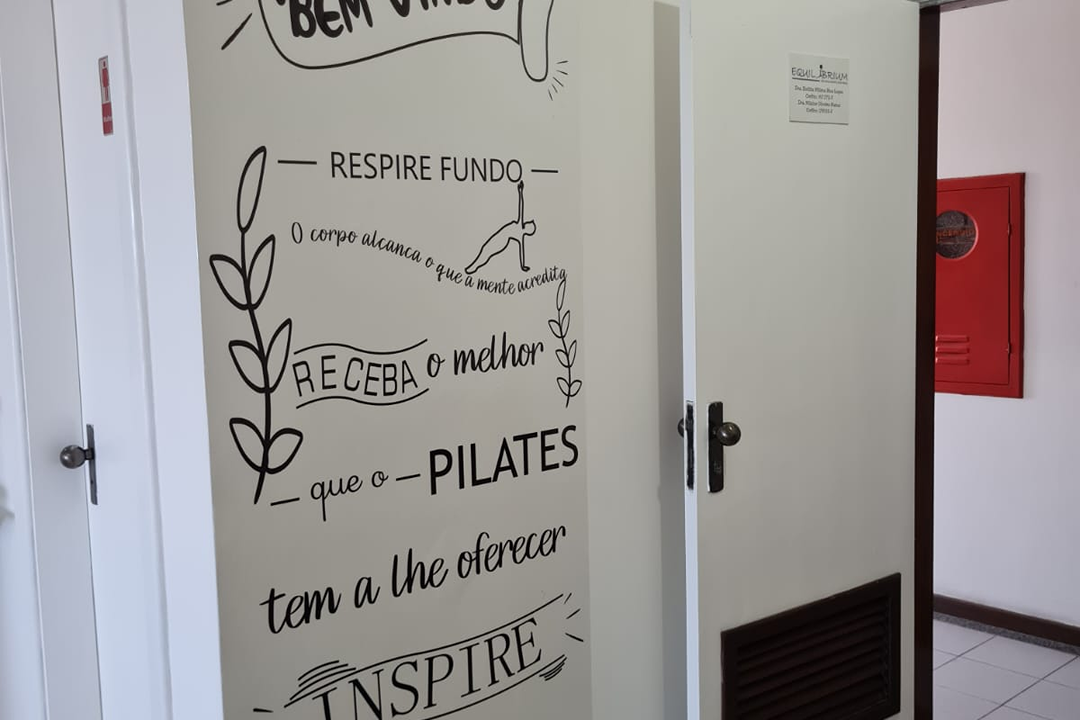 BEM VINDO
RESPIRE FUNDO
O corpo alcanca o que a mente acredita
RECEBA o melhor
que o PILATES
tem a lhe oferecer
INSPIRE
EQUILIBRIUM